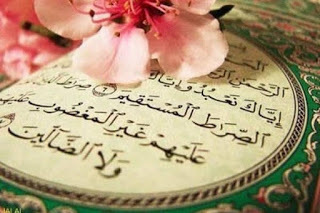 إِيَّاكَ نَعْبُدُ وَإِيَّاكَ
الصِّرَاطَ الْمُسْتَقِيمَ ٦ صِرَاطَ
عَلَيْهِمْ غَيْرِ الْمَغْضُوبِ عَلَيْهِمْ
وَلَا الضَّالِّينَ